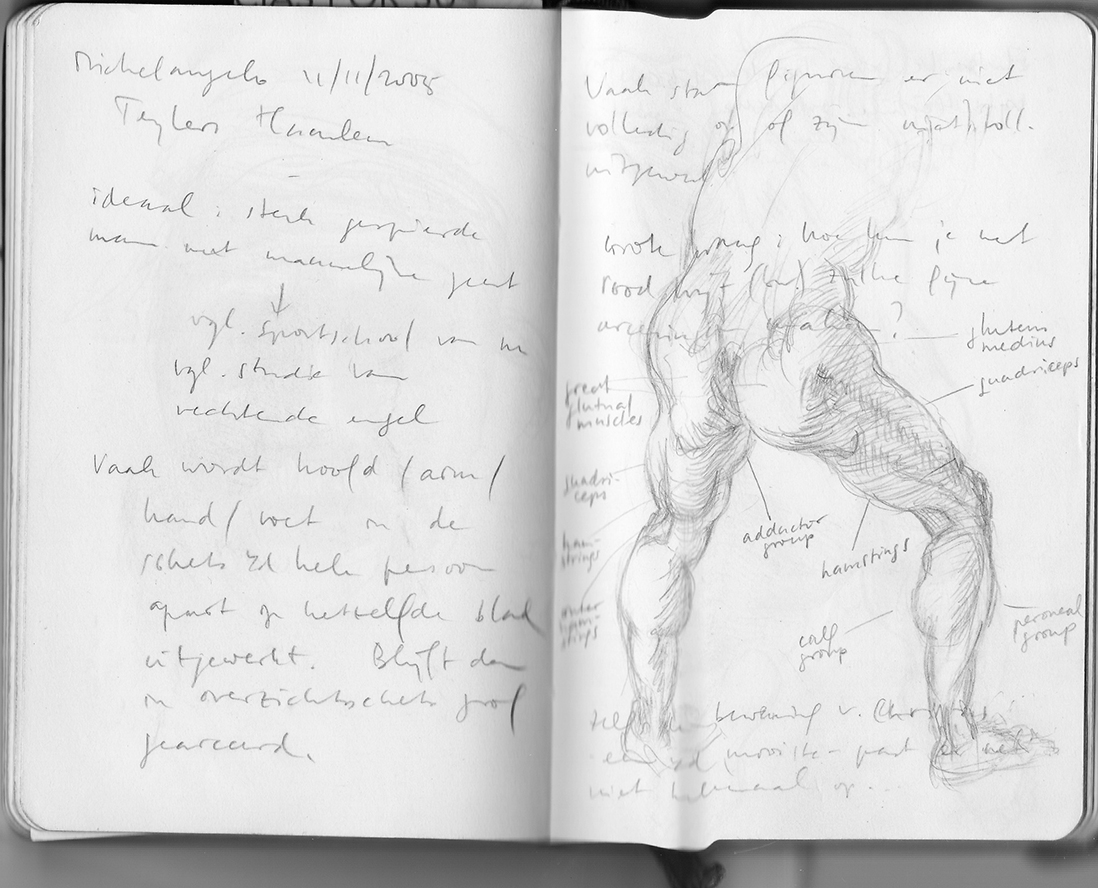 Michelangelo 11/11/2005
Teylers Haarlem
ideaal : sterk gespierde
man met mannelijke geest
vgl. sportschool van nu
vgl. studie van
vechtende engel
Vaak wordt hoofd / arm /
hand / voet in de
schets v/d hele persoon
apart op hetzelfde blad
uitgewerkt. Blijft dan
in overzichtsschets grof
gearceerd.
Vaak staan figuren er niet
volledig op of zijn niet voll.
uitgewerkt
vraag : hoe kun je met
rood krijt zulke fijne
arceringen ?
gluteus
medius
quadriceps
great
glutual
muscles
quadri-
ceps
ham-
strings
outer
ham-
stings
adductor
group
hamstings
calf
group
peroneal
group
bewening v. Christus :
een v/d mooiste - past er net
niet helemaal op...